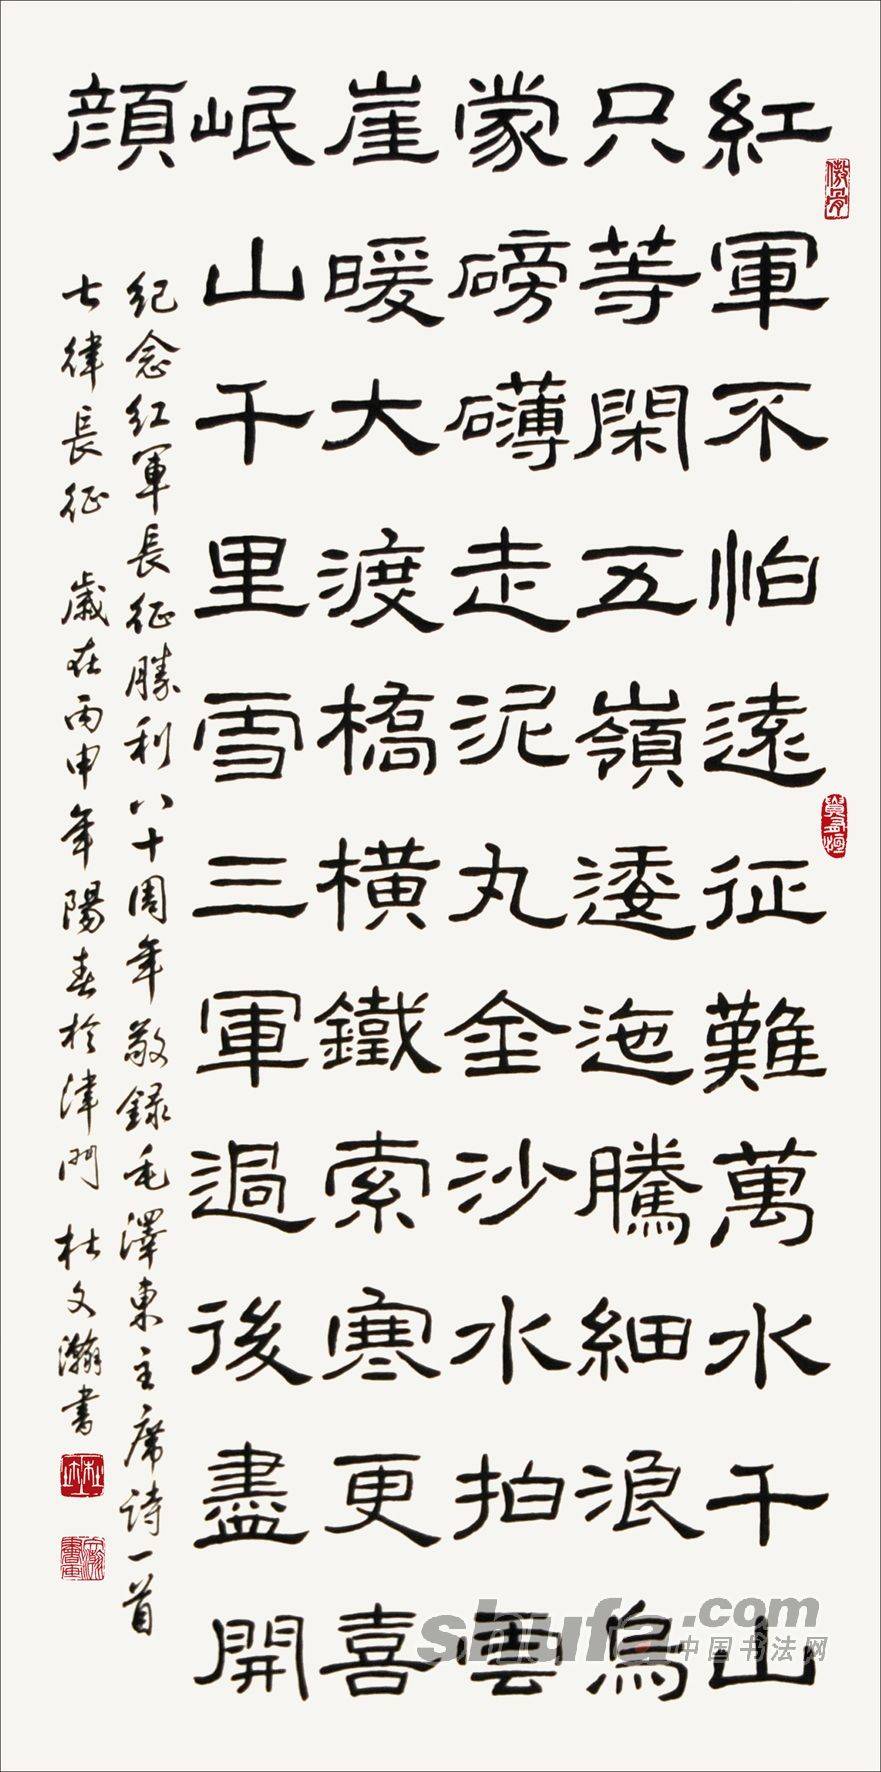 紅軍不怕遠征難萬水千山
只等閑五嶺逶迤騰細浪烏
蒙磅礴走泥丸金沙水拍雲
崖暖大渡橋橫鐵索寒更喜
岷山千里雪三軍過後盡開
顏
纪念红軍長征勝利八十周年敬録毛澤東主席诗一首
七律長征 歲在丙申年陽春於津門 杜文瀚书
傲骨
shufa.com
中国书法网